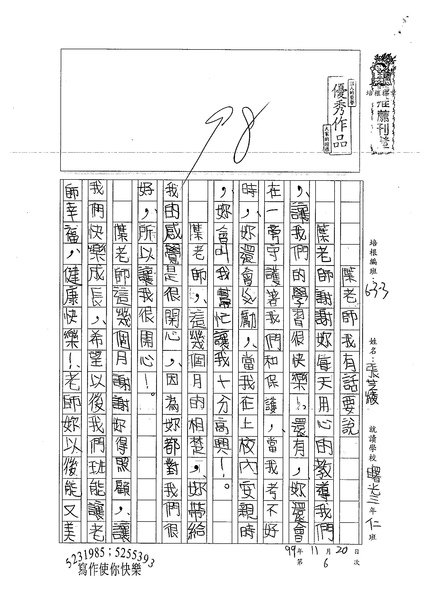 優秀作品
推薦刊登
98
培根編班：633
姓名：
就讀學校 曙光三年仁班
99年11月20日
第6次
葉老師我有話要說
葉老師謝謝妳每天用心的教導我們
，讓我們的學習很快樂！還有，妳還會
在一旁守護著我們和保護，當我考不好
時，妳還會鼓勵，當我在上校內安親時
，妳會叫我幫忙讓我十分高興！。
葉老師，這幾個月的相楚，妳帶給
我的感覺是很開心，因為妳都對我們很
好，所以讓我很開心！。
葉老師這幾個月謝謝妳得照顧，讓
我們快樂成長，希望以後我們班能讓老
師幸福，健康快樂！老師妳以後能又美
5231985；5255393
寫作使你快樂